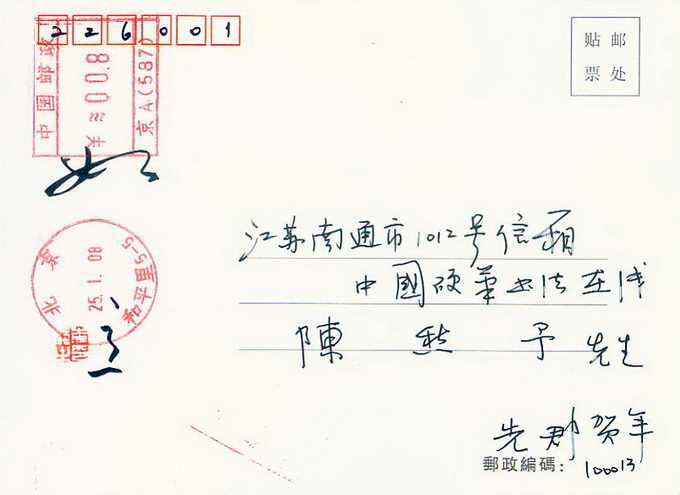 226001
贴邮
票处
中国邮政
008
京A(587)
北京
25.1.08
江苏南通市1012号信箱
中國硬筆书法在线
陳 愁 予 先生
贺年
郵政編碼：100013